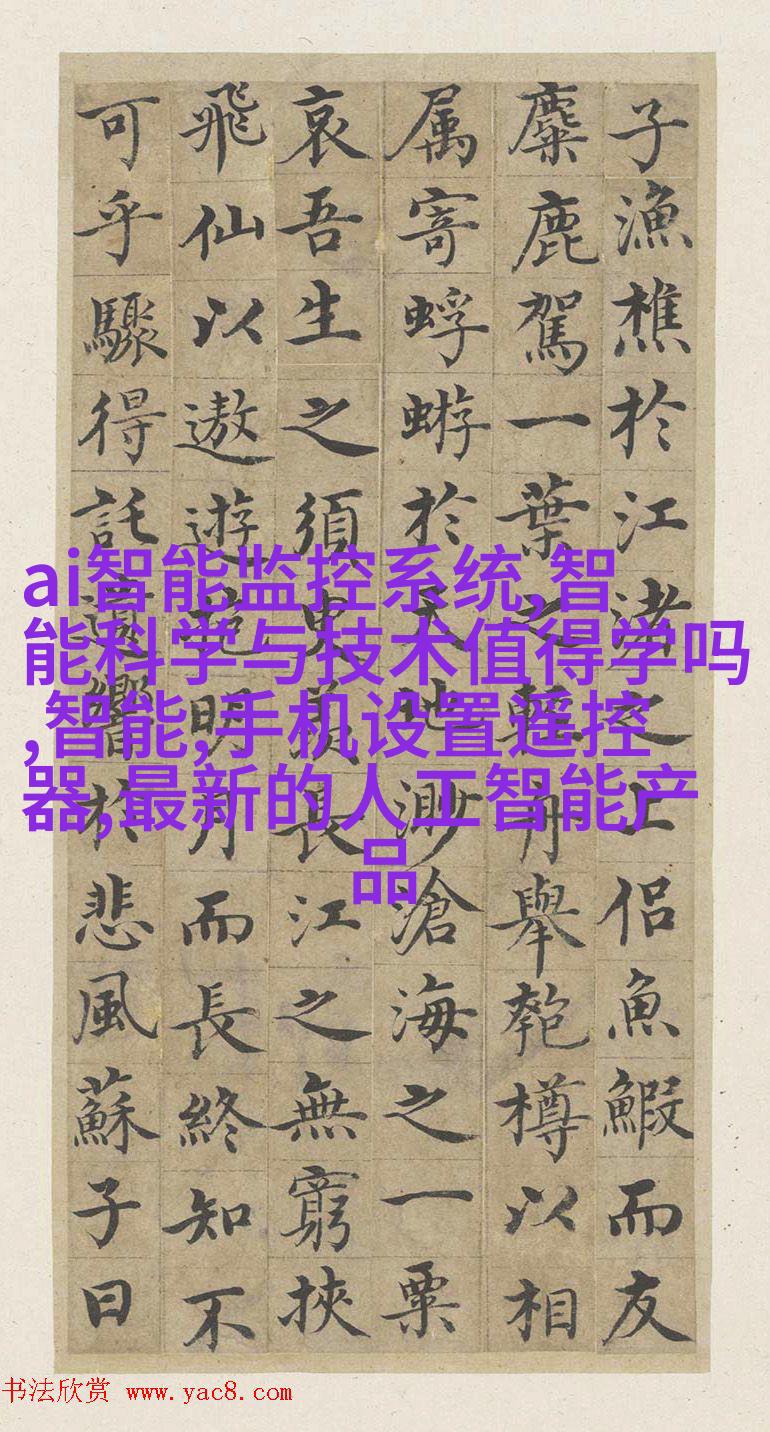 子漁樵於江渚之上侶魚鰕而友
麋鹿駕一葉之輕舟舉匏樽以相
属寄蜉蝣於天地渺滄海之一粟
哀吾生之須臾羨長江之無窮挾
飛仙以遨遊抱明月而長終知不
可乎驟得託遺響於悲風蘇子曰
ai智能监控系统,智
能科学与技术值得学吗
,智能,手机设置遥控
器,最新的人工智能产
品
书法欣赏 www.yac8.com